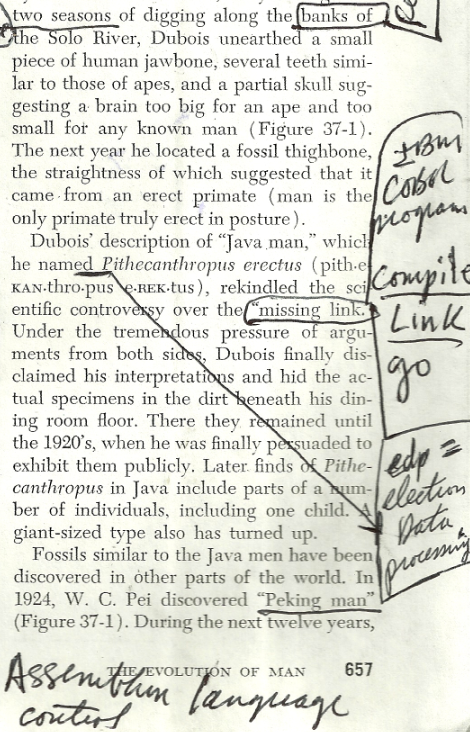 two seasons of digging along the banks of
the Solo River, Dubois unearthed a small
piece of human jawbone, several teeth simi-
lar to those of apes, and a partial skull sug-
gesting a brain too big for an ape and too
small for any known man (Figure 37-1).
The next year he located a fossil thighbone,
the straightness of which suggested that it
came from an erect primate (man is the
only primate truly erect in posture).
Dubois' description of "Java man," which
he named Pithecanthropus erectus (pith·e
KAN·thro·pus e·REK·tus), rekindled the sci
entific controversy over the "missing link."
Under the tremendous pressure of argu-
ments from both sides, Dubois finally dis-
claimed his interpretations and hid the ac-
tual specimens in the dirt beneath his din-
ing room floor. There they remained until
the 1920's, when he was finally persuaded to
exhibit them publicly. Later finds of Pithe-
canthropus in Java include parts of a num-
ber of individuals, including one child. A
giant-sized type also has turned up.
Fossils similar to the Java men have been
discovered in other parts of the world. In
1924, W. C. Pei discovered "Peking man"
(Figure 37-1). During the next twelve years,
THE EVOLUTION OF MAN 657
IBM
COBOL
programs
compile
Link
go
edp =
election
Data
processing
language
control